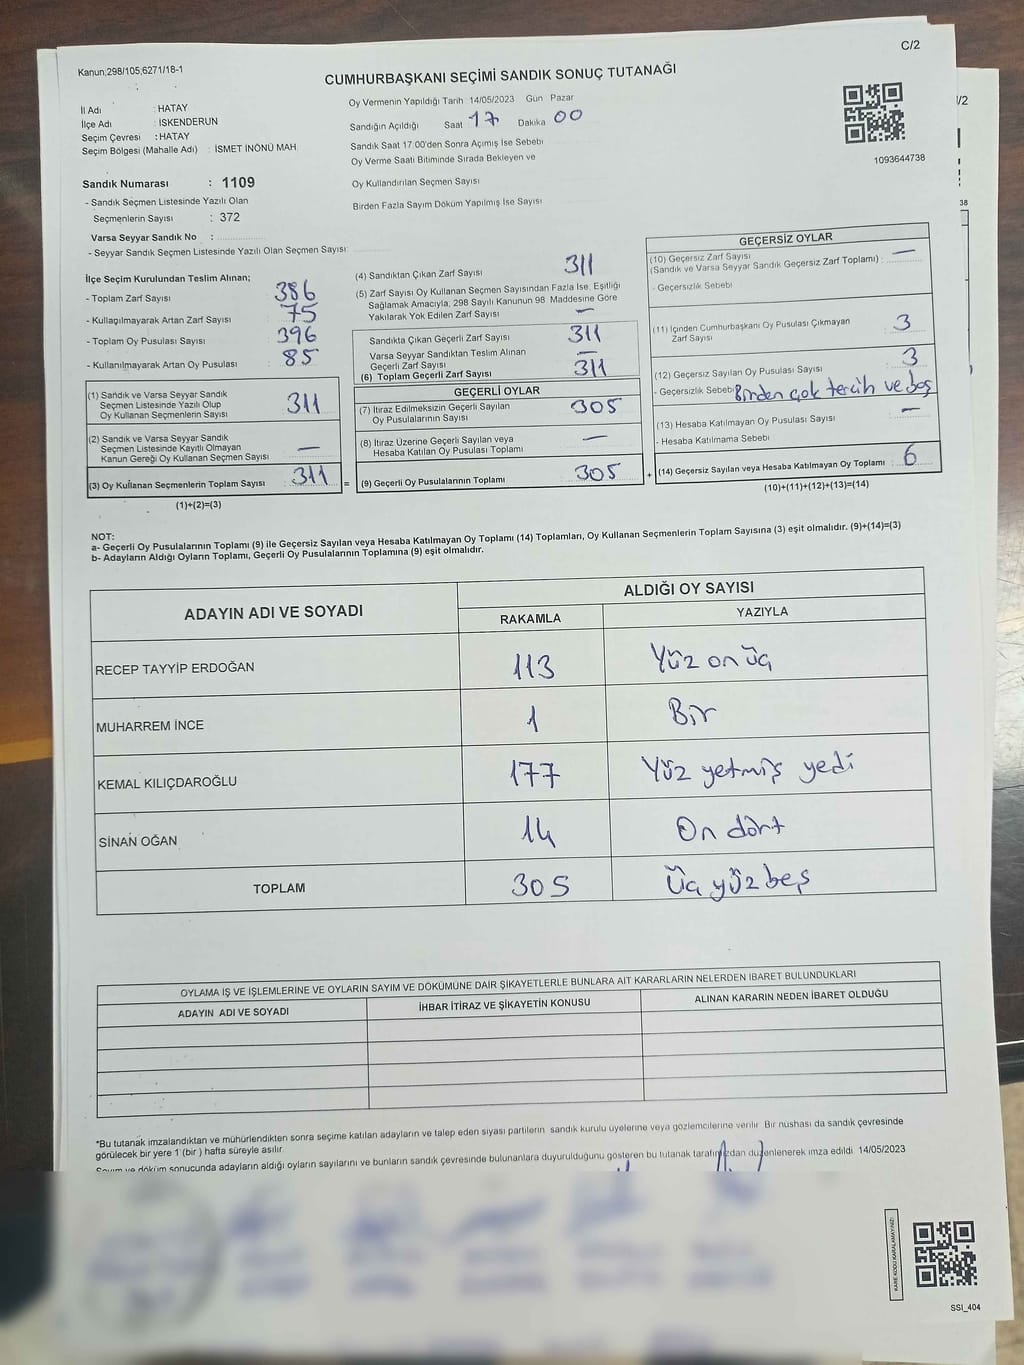 C/2
Kanun,298/105;6271/18-1
CUMHURBAŞKANI SEÇİMİ SANDIK SONUÇ TUTANAĞI
İl Adı : HATAY
İlçe Adı : İSKENDERUN
Seçim Çevresi : HATAY
Seçim Bölgesi (Mahalle Adı) : İSMET İNÖNÜ MAH
Oy Vermenin Yapıldığı Tarih 14/05/2023 Gün Pazar
Sandığın Açıldığı Saat 17 Dakika 00
Sandık Saat 17.00'den Sonra Açımış İse Sebebi
Oy Verme Saati Bitiminde Sırada Bekleyen ve
Oy Kullandırılan Seçmen Sayısı
Birden Fazla Sayım Döküm Yapılmış İse Sayısı
1093644738
/2
38
Sandık Numarası : 1109
- Sandık Seçmen Listesinde Yazılı Olan
Seçmenlerin Sayısı : 372
Varsa Seyyar Sandık No :
- Seyyar Sandık Seçmen Listesinde Yazılı Olan Seçmen Sayısı:
İlçe Seçim Kurulundan Teslim Alınan;
- Toplam Zarf Sayısı 386
- Kullaçılmayarak Artan Zarf Sayısı 75
- Toplam Oy Pusulası Sayısı 396
- Kullanılmayarak Artan Oy Pusulası 85
(1) Sandık ve Varsa Seyyar Sandık
Seçmen Listesinde Yazılı Olup
Oy Kullanan Seçmenlerin Sayısı 311
(2) Sandık ve Varsa Seyyar Sandık
Seçmen Listesinde Kayıtlı Olmayan
Kanun Gereği Oy Kullanan Seçmen Sayısı —
(3) Oy Kullanan Seçmenlerin Toplam Sayısı 311 =
(1)+(2)=(3)
(4) Sandıktan Çıkan Zarf Sayısı 311
(5) Zarf Sayısı Oy Kullanan Seçmen Sayısından Fazla İse, Eşitliği
Sağlamak Amacıyla, 298 Sayılı Kanunun 98 Maddesine Göre
Yakılarak Yok Edilen Zarf Sayısı —
Sandıkta Çıkan Geçerli Zarf Sayısı 311
Varsa Seyyar Sandıktan Teslim Alınan
Geçerli Zarf Sayısı —
(6) Toplam Geçerli Zarf Sayısı 311
GEÇERLİ OYLAR
(7) İtiraz Edilmeksizin Geçerli Sayılan
Oy Pusulalarının Sayısı 305
(8) İtiraz Üzerine Geçerli Sayılan veya
Hesaba Katılan Oy Pusulası Toplamı —
(9) Geçerli Oy Pusulalarının Toplamı 305 +
GEÇERSİZ OYLAR
(10) Geçersiz Zarf Sayısı
(Sandık ve Varsa Seyyar Sandık Geçersiz Zarf Toplamı) : —
- Geçersizlik Sebebi
(11) İçinden Cumhurbaşkanı Oy Pusulası Çıkmayan
Zarf Sayısı : 3
(12) Geçersiz Sayılan Oy Pusulası Sayısı : 3
- Geçersizlik Sebebi Birden çok tercih ve boş
(13) Hesaba Katılmayan Oy Pusulası Sayısı : —
- Hesaba Katılmama Sebebi
(14) Geçersiz Sayılan veya Hesaba Katılmayan Oy Toplamı : 6
(10)+(11)+(12)+(13)=(14)
NOT:
a- Geçerli Oy Pusulalarının Toplamı (9) ile Geçersiz Sayılan veya Hesaba Katılmayan Oy Toplamı (14) Toplamları, Oy Kullanan Seçmenlerin Toplam Sayısına (3) eşit olmalıdır. (9)+(14)=(3)
b- Adayların Aldığı Oyların Toplamı, Geçerli Oy Pusulalarının Toplamına (9) eşit olmalıdır.
ADAYIN ADI VE SOYADI ALDIĞI OY SAYISI
RAKAMLA YAZIYLA
RECEP TAYYİP ERDOĞAN 113 Yüz on üç
MUHARREM İNCE 1 Bir
KEMAL KILIÇDAROĞLU 177 Yüz yetmiş yedi
SİNAN OĞAN 14 On dört
TOPLAM 305 Üç yüz beş
OYLAMA İŞ VE İŞLEMLERİNE VE OYLARIN SAYIM VE DÖKÜMÜNE DAİR ŞİKAYETLERLE BUNLARA AİT KARARLARIN NELERDEN İBARET BULUNDUKLARI
ADAYIN ADI VE SOYADI İHBAR İTİRAZ VE ŞİKAYETİN KONUSU ALINAN KARARIN NEDEN İBARET OLDUĞU
*Bu tutanak imzalandıktan ve mühürlendikten sonra seçime katılan adayların ve talep eden siyasi partilerin sandık kurulu üyelerine veya gözlemcilerine verilir Bir nushası da sandık çevresinde
görülecek bir yere 1 (bir) hafta süreyle asılır.
Sayım ve döküm sonucunda adayların aldığı oyların sayılarını ve bunların sandık çevresinde bulunanlara duyurulduğunu gösteren bu tutanak tarafımızdan düzenlenerek imza edildi 14/05/2023
KARE KODU KARALAMAYINIZ!
SSI_404